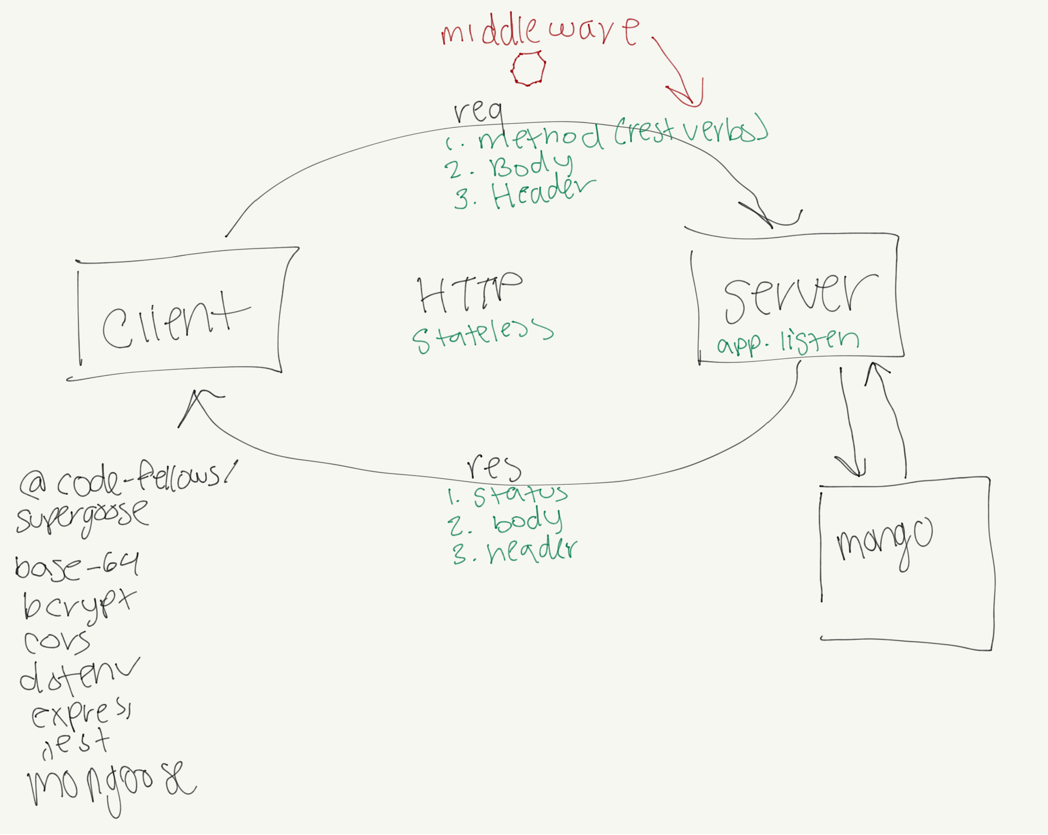 middleware
req
1. method (rest verbs)
2. Body
3. Header
client
HTTP
stateless
server
app.listen
res
1. status
2. body
3. header
mongo
@code-fellows/
supergoose
base-64
bcrypt
cors
dotenv
express
jest
mongoose